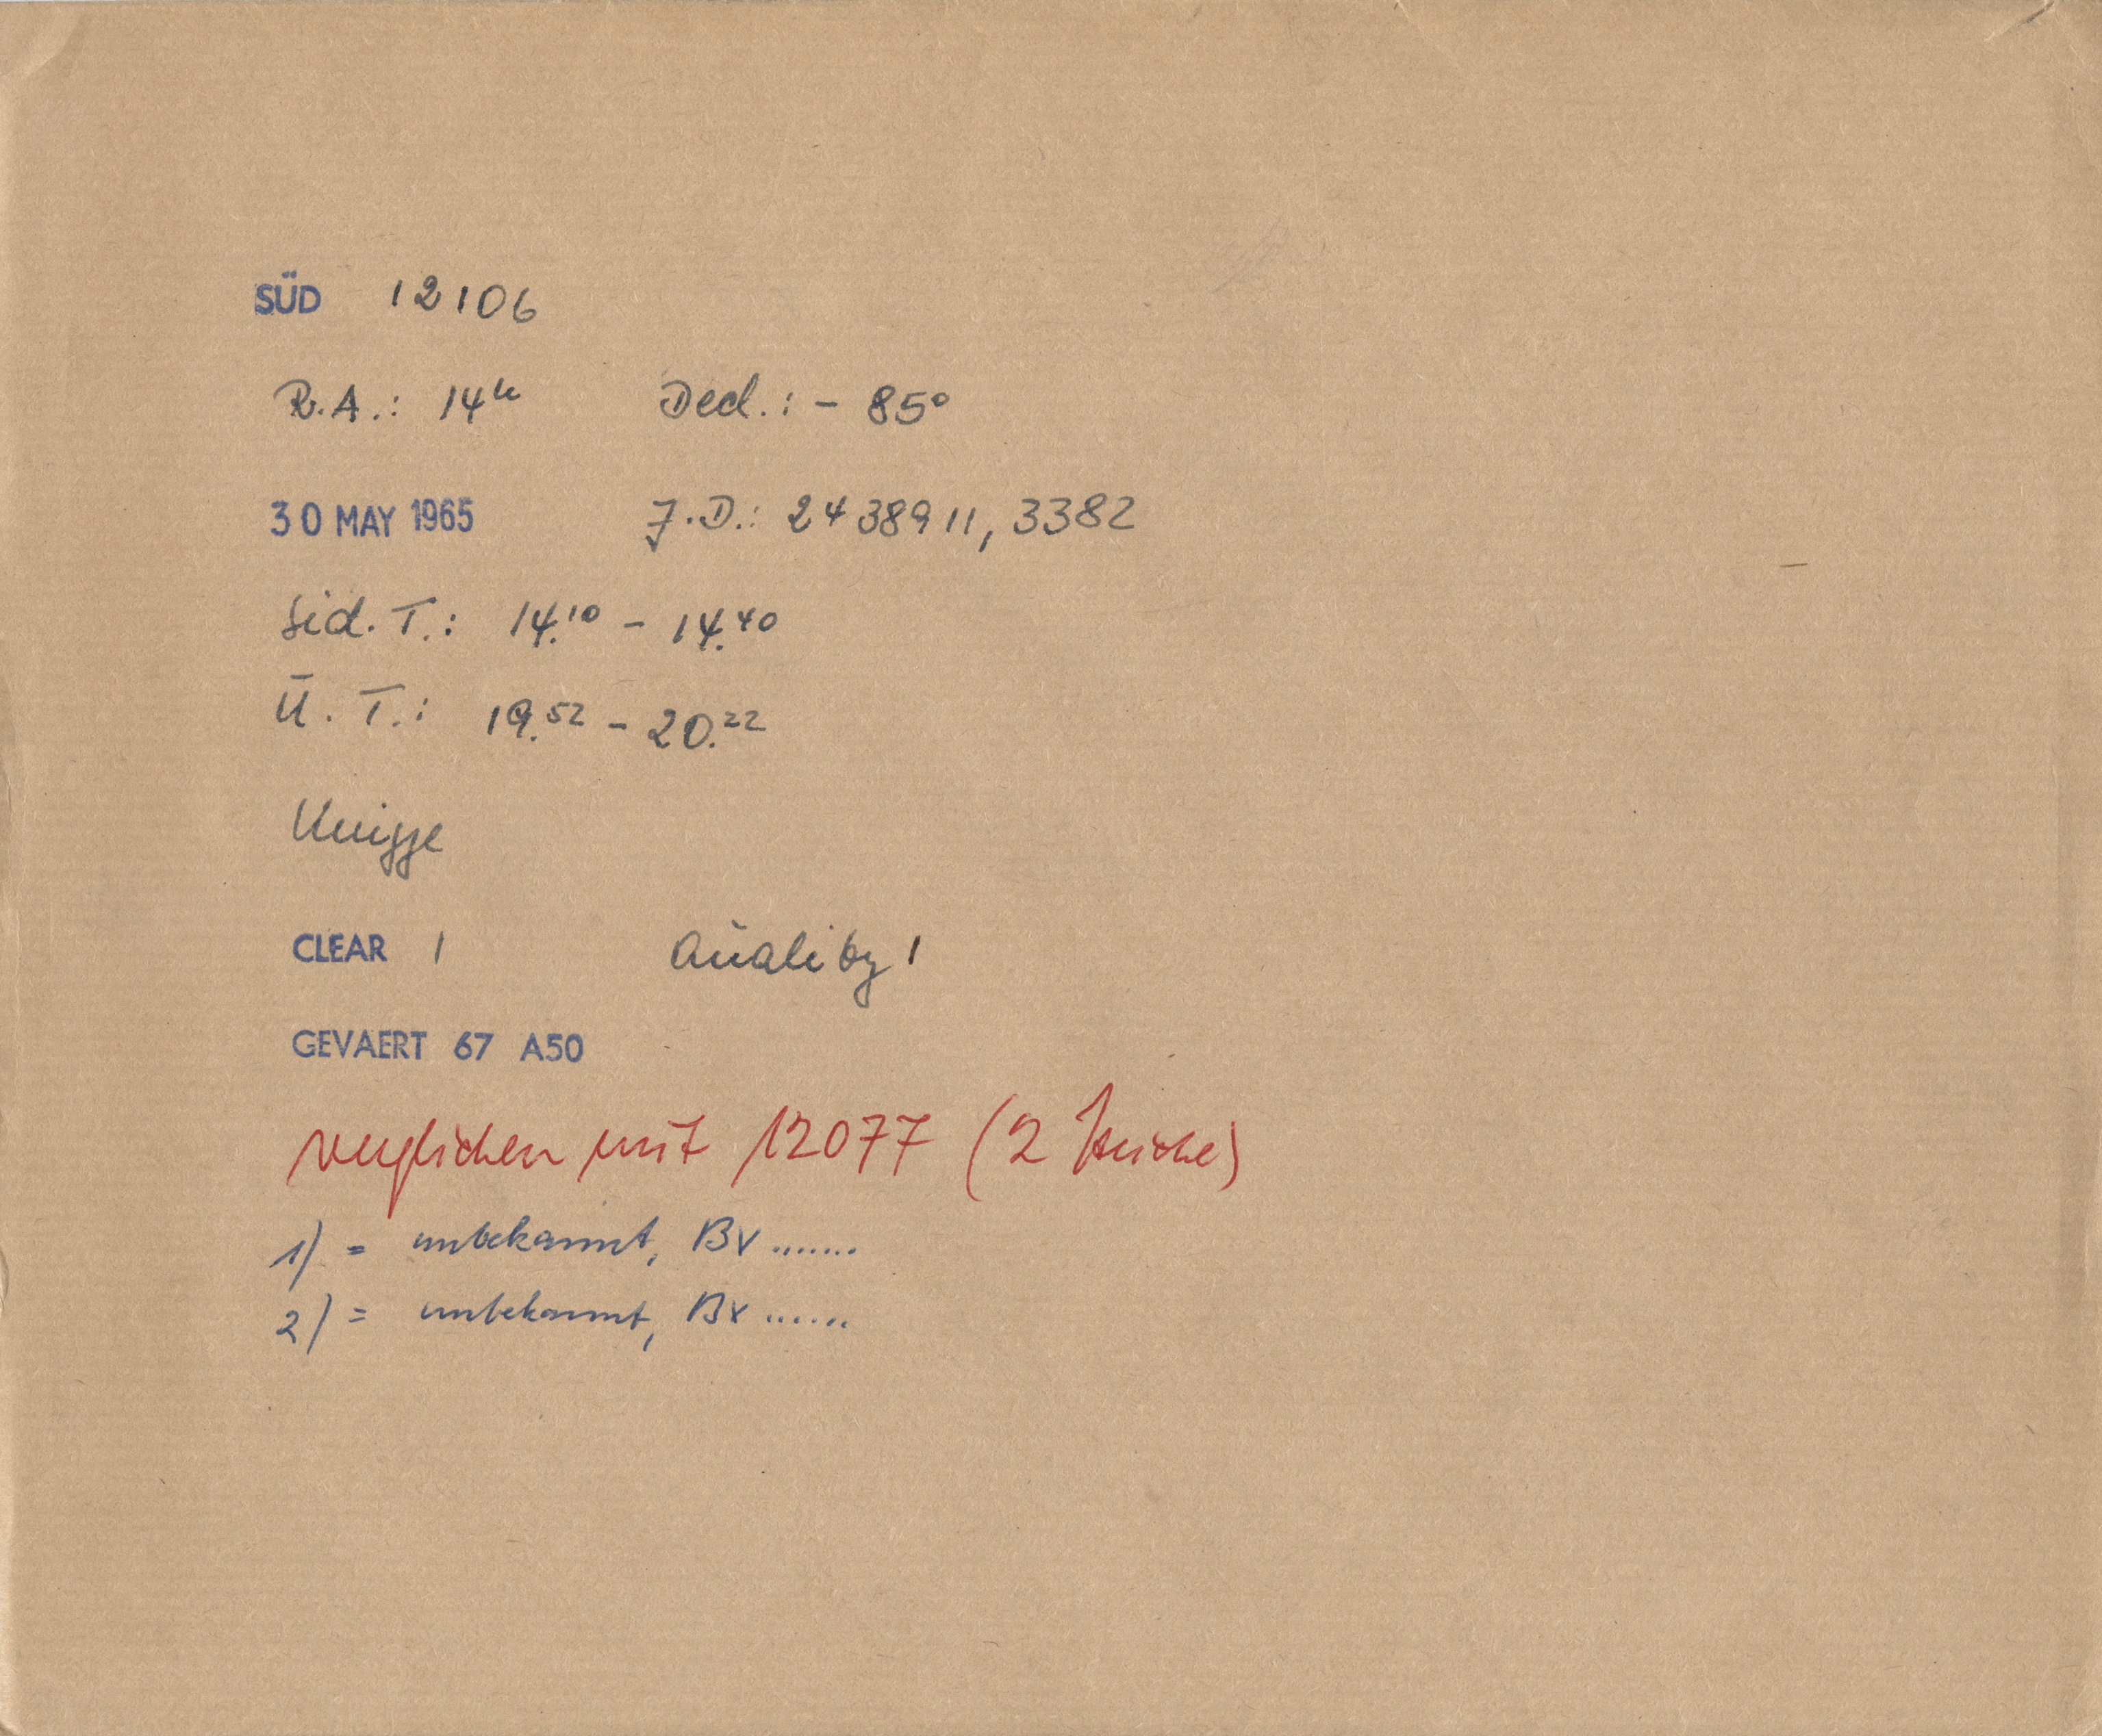 SÜD 12106
R.A.: 14ʰ Decl.: - 85°
30 MAY 1965 J.D.: 2438911,3382
Sid. T.: 14.¹⁰ - 14.⁴⁰
U. T.: 19.⁵² - 20.²²
Knigge
CLEAR 1 Quality 1
GEVAERT 67 A50
verglichen mit 12077 (2 Striche)
1) = unbekannt, BV .......
2) = unbekannt, BV ......